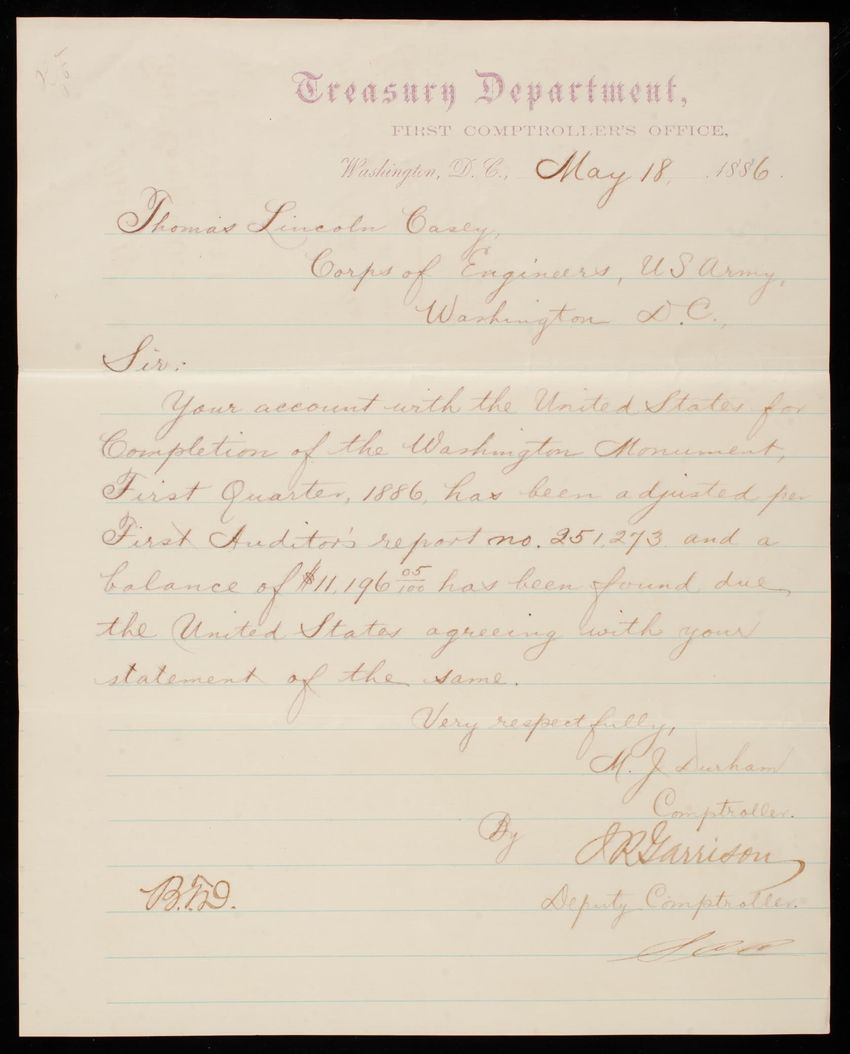 Treasury Department,
FIRST COMPTROLLER'S OFFICE,
Washington, D. C., May 18, 1886.
Thomas Lincoln Casey,
Corps of Engineers, US Army,
Washington D.C.,
Sir:
Your account with the United States for
Completion of the Washington Monument,
First Quarter, 1886, has been adjusted per
First Auditor's report no. 251,273 and a
balance of $11,196 05/100 has been found due
the United States agreeing with your
statement of the same.
Very respectfully,
M. J. Durham
Comptroller.
By
J R Garrison
Deputy Comptroller.